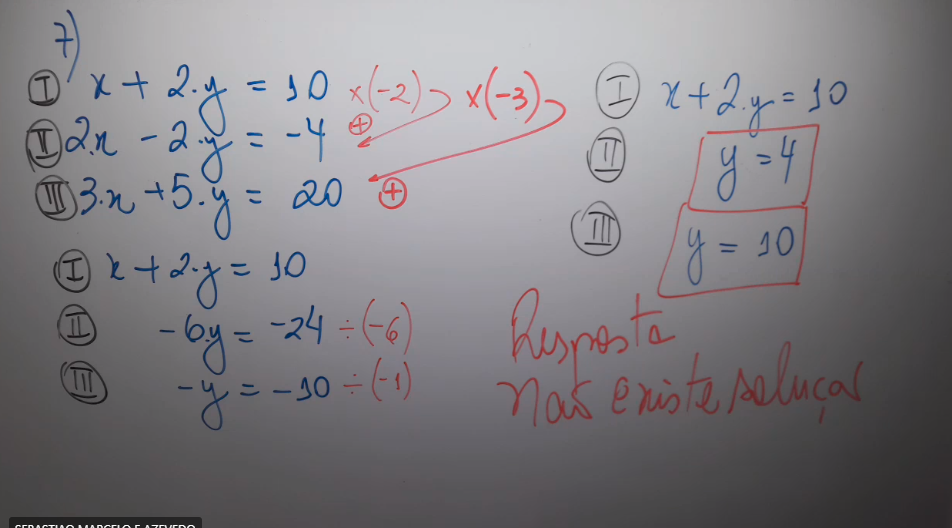 7)
I x + 2.y = 10 x(-2) x(-3)
II 2.x - 2.y = -4 +
III 3.x + 5.y = 20 +
I x + 2.y = 10
II -6y = -24 ÷(-6)
III -y = -10 ÷(-1)
I x + 2.y = 10
II y = 4
III y = 10
Resposta
não existe solução
SEBASTIAO MARCELO F AZEVEDO